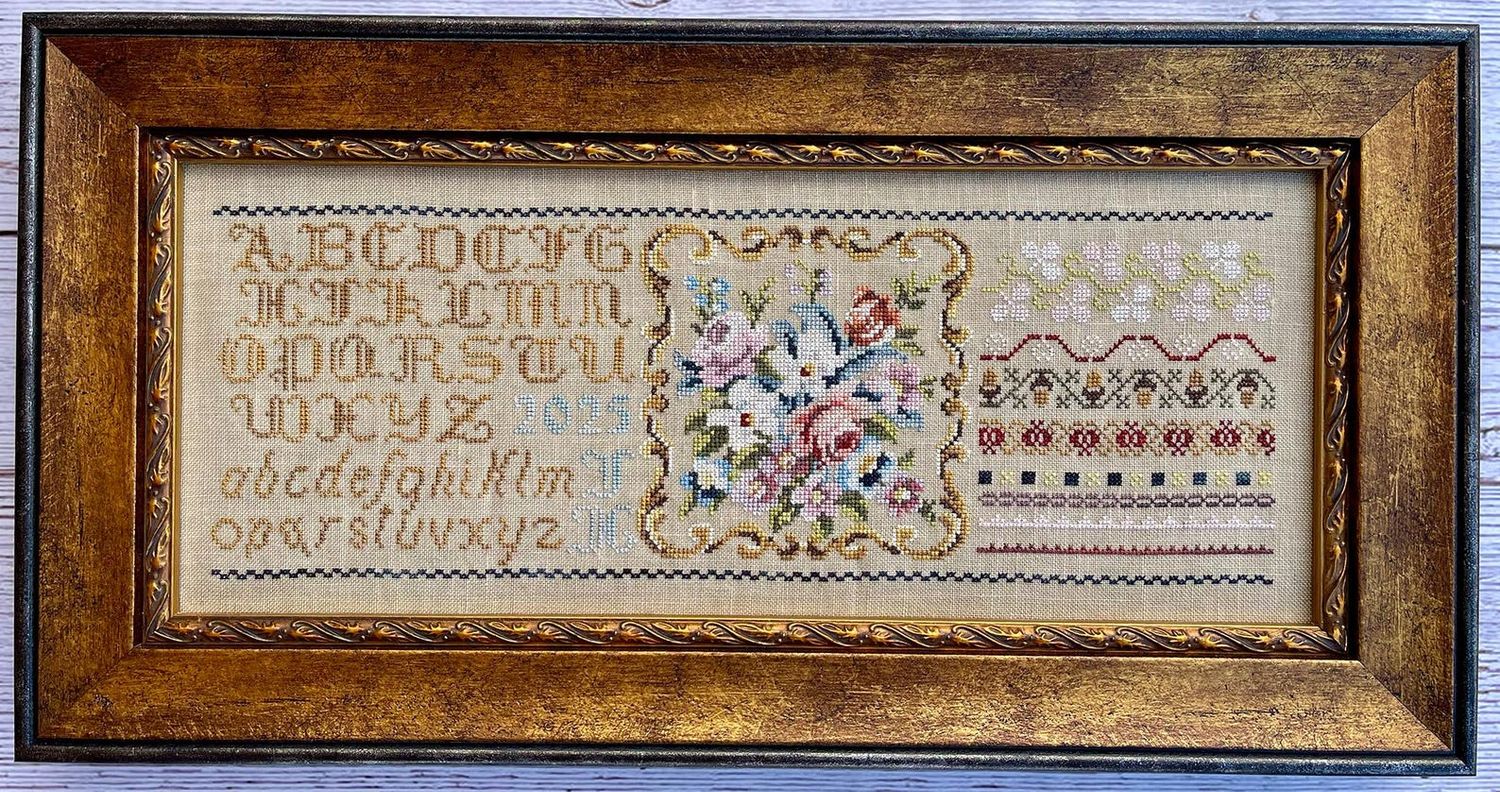 ABCDEFG
HIKLMN
OPQRSTU
WXYZ 2025
abcdefghiklm
opqrstuvxyz